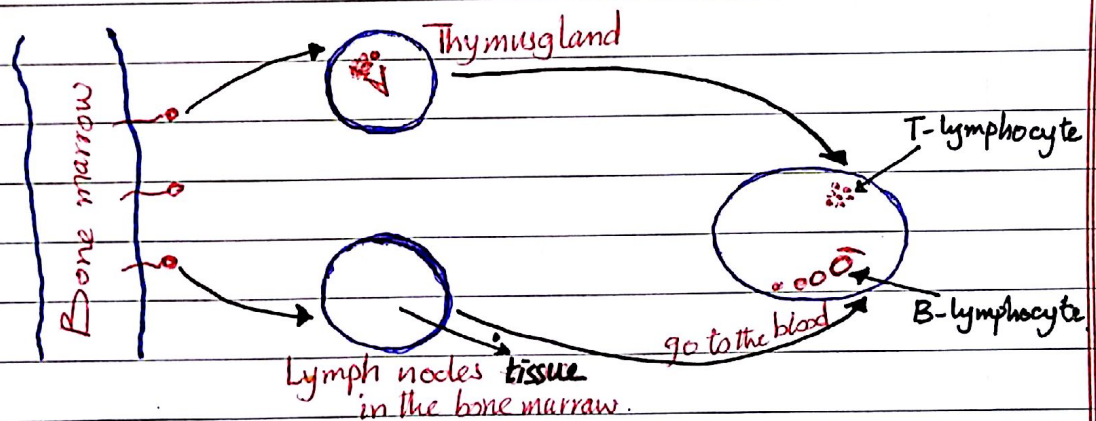 Bone marrow
Thymusgland
T-lymphocyte
B-lymphocyte
go to the blood
Lymph nodes tissue
in the bone marraw.